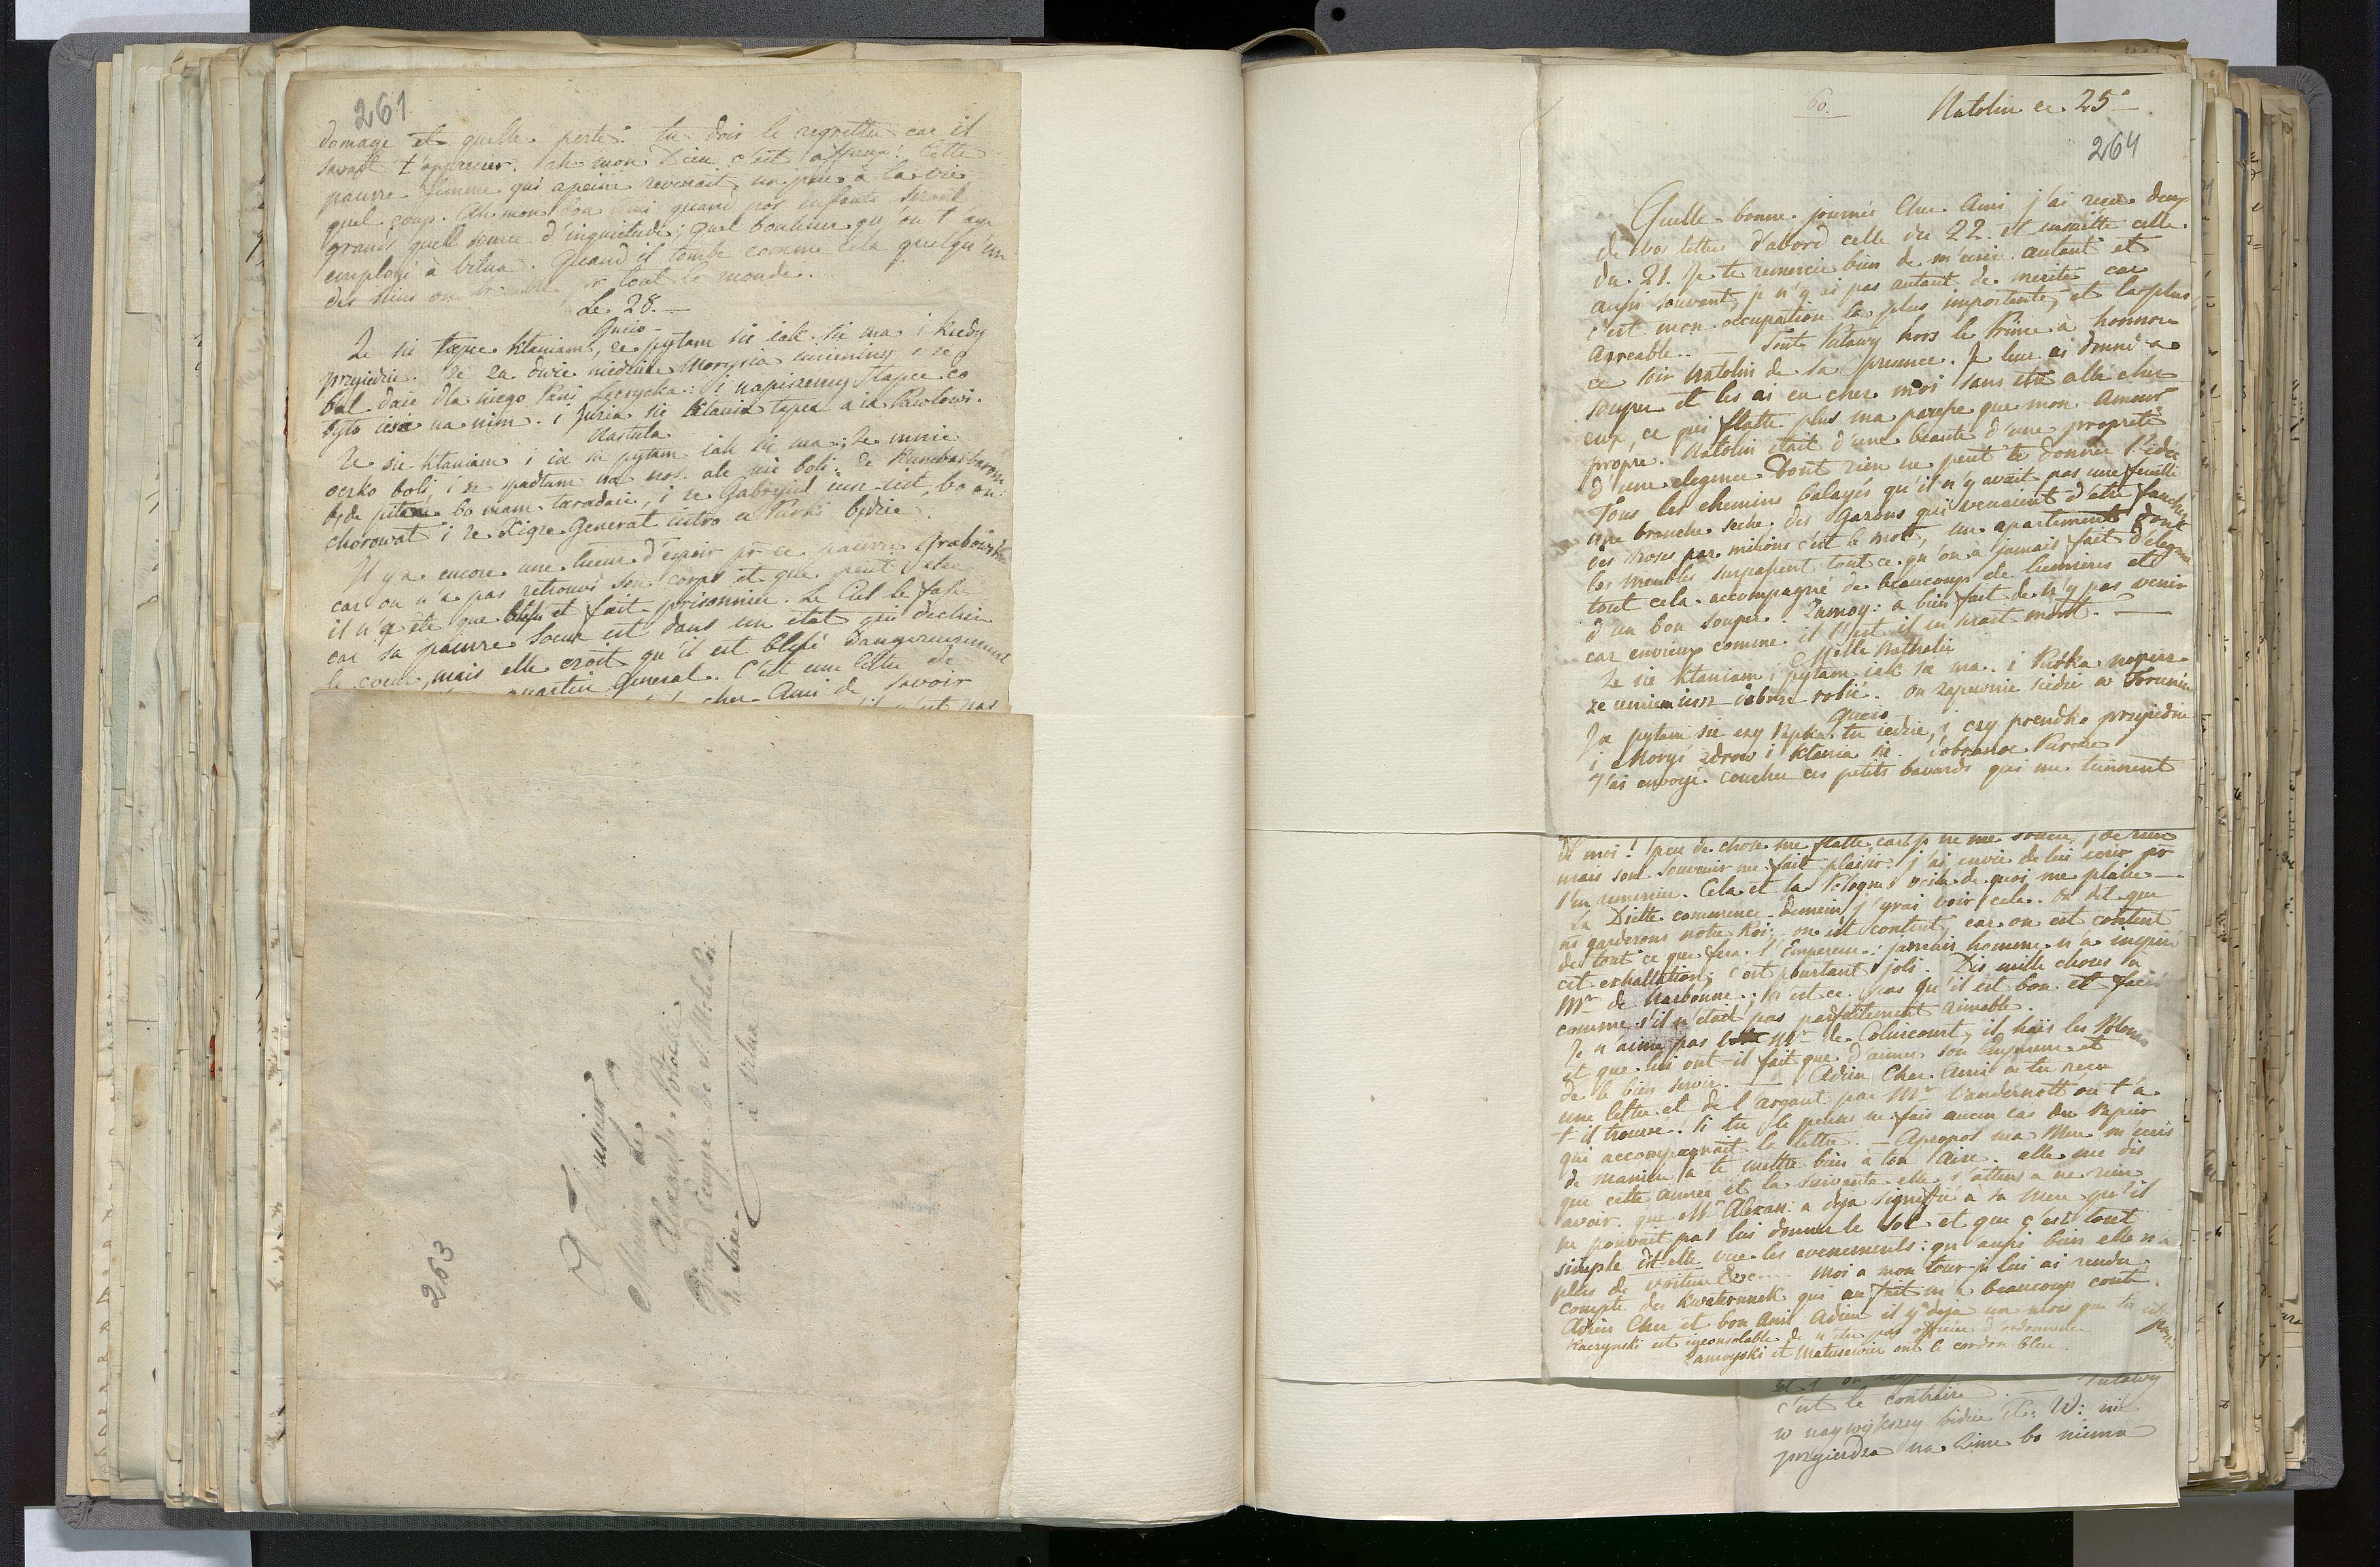 261
domage et quelle perte. tu dois le regretter car il
savait t'apprecier. ah mon Dieu c'est affreux! Cette
pauvre femme qui apeine revenait un peu à la vie
quel coup. Ah mon bon Ami quand nos enfants seront
grands quelle source d'inquietude; quel bonheur qu'on t'aye
employé à Vilna. Quand il tombe comme cela quelqu'un
des siens on tremble pr tout le monde.
Le 28.
Gucio
Ze się tapce kłaniam, ze pytam się iak się ma i kiedy
przyiedzie. Ze za dwie niedziele Morysia imieniny i ze
bal daie dla niego Pani
byto iesć na nim. i się kłania tapea a ia Pawłowi.
Nastula
Ze się kłaniam i ia się pytam iak się ma; ze mnie
oczko boli, i ze spadłam na nos ale nie boli. Ze
będe bo mam taradaie, i ze Gabryiel iuz iest, bo on
chorował i ze Xiąze Generał iutro w bydzie.
Il y a encore une lueur d'espoir pr ce pauvre Grabowski
car on n'a pas retrouvé son corps et que peut etre
il n'a été que blessé et fait prisonnier. Le Ciel le fasse
car sa pauvre soeur est dans un etat qui dechire
le coeur, mais elle croit qu'il est blessé dangereusement
quartier General. C'est une lettre de
cher Ami de savoir
263
A Monsieur
Monsieur Le Comte
Alexandre Potocki
Grand Ecuyer de S: M: le Roi
de Saxe
à Vilna
60.
Natolin ce 25
264
Quelle bonne journée Cher Ami j'ai recu deux
de vos lettres d'abord celle du 22. et ensuitte celle
du 21. Je te remercie bien de m'ecrire autant et
aussi souvent, je n'y ai pas autant de merite car
c'est mon occupation la plus importente, et la plus
agreable.. — Tout Pulawy hors le Prince à honnoré
ce soir Natolin de sa presence. Je leur ai donné a
souper et les ai eu chez moi sans etre allé chez
eux, ce qui flatte plus ma paresse que mon Amour
propre. Natolin etait d'une beauté d'une propreté
d'une elegence dont rien ne peut te donner l'idée
Tous les chemins balayés qu'il n'y avait pas une feuille
une branche seche. des Gazons qui venaient d'etre fauchés
des Roses par milions c'est le mot, un apartement dont
les meubles surpassent tout ce qu'on a jamais fait d'elegent
tout cela accompagné de beaucoup de lumieres et
d'un bon souper. Zamoy: a bien fait de n'y pas venir
car envieux comme il l'est il en serait mort.
Mlle Nathalie
Ze się kłaniam i pytam iak się ma. i
ze umiem iuz dobrze robić. on zapewnie siedzi w Toruniu
Gucio
Ja pytam się czy Papka tu iedzie, i czy prendko przyiedzie
i Moryś zdrow i kłania się. dobranoc
J'ai envoyé coucher ces petits bavards qui me tiennent
de moi! peu de chose me flatte car je ne me soucie de rien
mais son souvenir me fait plaisir. j'ai envie de lui ecrir pr
l'en remercier. Cela et la Pologne voila de quoi me plaire —
La Diette commence demein j'yrai voir cela. On dit que
ns garderons notre Roi; on est content, car on est content
de tout ce que fera l'Empereur: jamais homme n'a inspiré
cet exhaltation; c'est pourtant joli. Dis mille choses à
Mr de Narbonne; n'est ce pas qu'il est bon et facil
comme s'il n'etait pas parfaitement aimable.
Je n'aime pas Mr de Colincourt, il haïs les Polonais
et que lui ont-il fait que d'aimer son Empereur et
de le bien servir. — Adieu Cher Ami a tu recu
une lettre et de l'argant par Mr Vandernott ou t'a
t-il trouvé. Si tu le peux ne fais aucun cas du Papier
qui accompagnait la lettre. — Apropos ma Mere m'ecris
de maniere à te mettre bien à ton aise. elle me dis
que cette année et la suivante elle s'attens a ne rien
avoir. que Mr Alexan: a deja signifié a sa Mere qu'il
ne pouvait pas lui donner le sol et que c'est tout
simple dit-elle vue les evenements: qu'aussi bien elle n'a
plus de voiture &c.... Moi a mon tour je lui ai rendu
compte des kwaterunek qui au fait m'a beaucoup couté.
Adieu Cher et bon Ami Adieu il y a deja un mois que tu es
Kaczynski est inconsolable de n'etre pas officier d'ordonnance
Zamoyski et Matusewicz ont le cordon bleu.
c'est le contraire. — Pulawy
w naywiększey bidzie X: W: nie
przyiezdza na zime bo niema